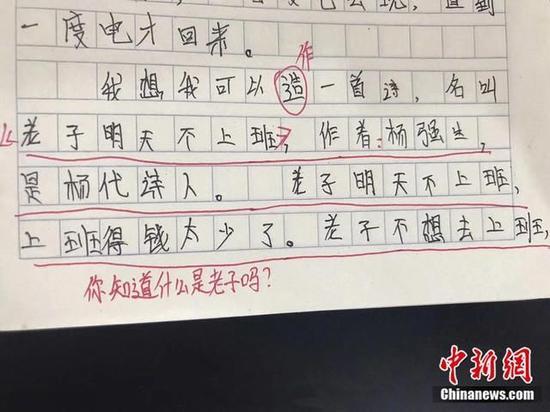 一度电才回来。
作
我想我可以造一首诗,名叫
《老子明天不上班》,作者:杨强生,
是杨代诗人。老子明天不上班,
上班得钱太少了。老子不想去上班,
你知道什么是老子吗?
中新网
Chinanews.com